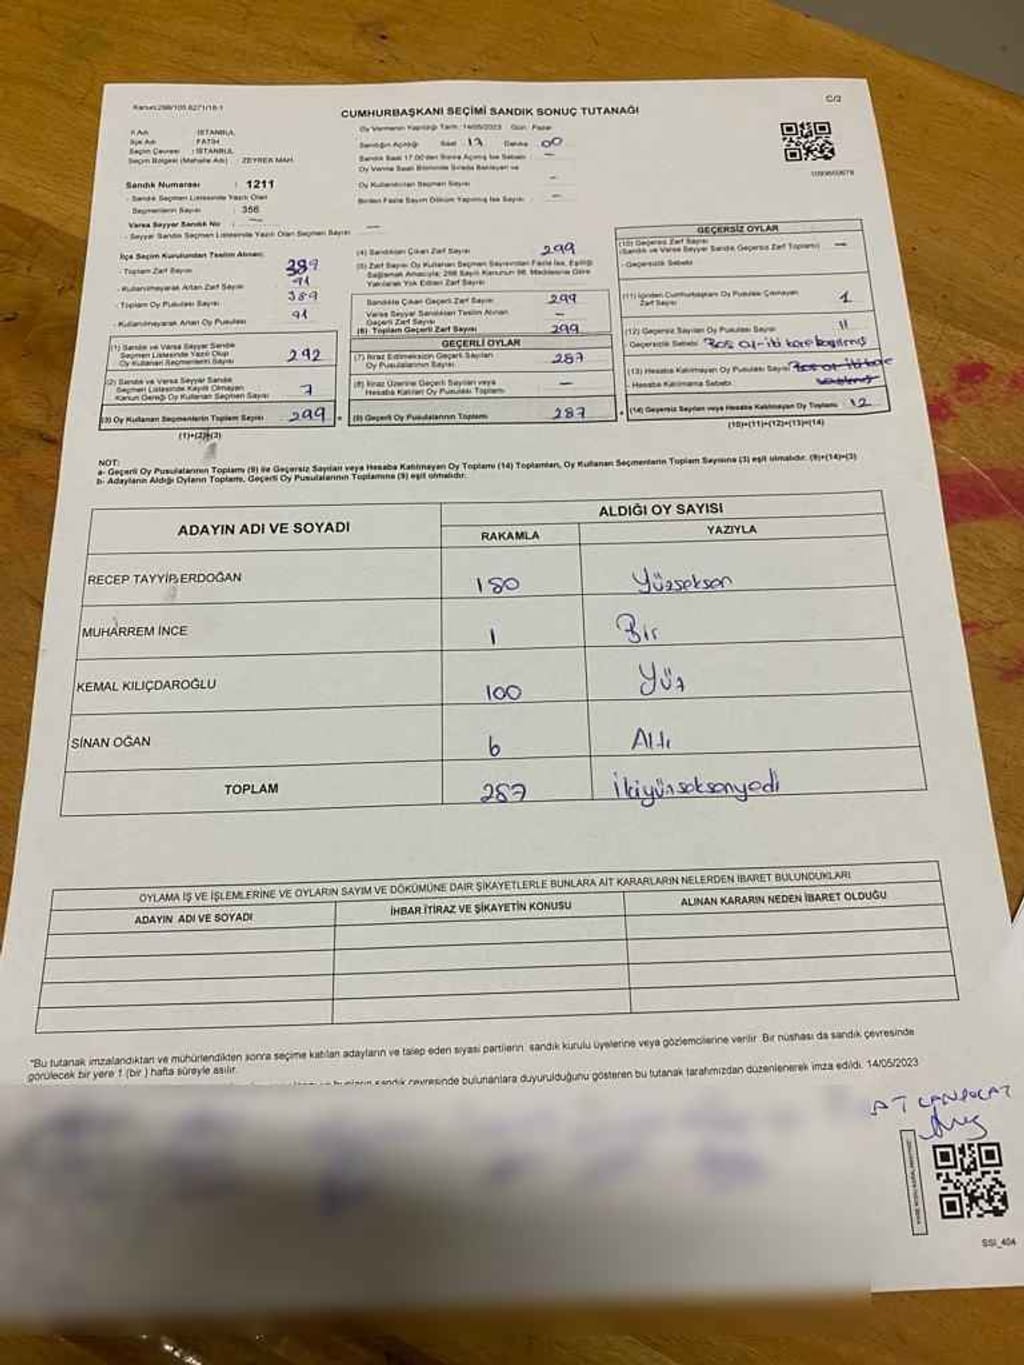 Kanun:298/105 6271/18-1
C/2
CUMHURBAŞKANI SEÇİMİ SANDIK SONUÇ TUTANAĞI
İl Adı : İSTANBUL
İlçe Adı : FATİH
Seçim Çevresi : İSTANBUL
Seçim Bölgesi (Mahalle Adı) : ZEYREK MAH.
Oy Vermenin Yapıldığı Tarih :14/05/2023 Gün: Pazar
Sandığın Açıldığı Saat : 17 Dakika 00
Sandık Saat 17.00'den Sonra Açılmış İse Sebebi —
Oy Verme Saati Bitiminde Sırada Bekleyen ve
Oy Kullandırılan Seçmen Sayısı —
Birden Fazla Sayım Döküm Yapılmış İse Sayısı —
Sandık Numarası : 1211
- Sandık Seçmen Listesinde Yazılı Olan
Seçmenlerin Sayısı : 356
Varsa Seyyar Sandık No : —
- Seyyar Sandık Seçmen Listesinde Yazılı Olan Seçmen Sayısı —
İlçe Seçim Kurulundan Teslim Alınan:
- Toplam Zarf Sayısı 389
- Kullanılmayarak Artan Zarf Sayısı 91
- Toplam Oy Pusulası Sayısı 389
- Kullanılmayarak Artan Oy Pusulası 91
(1) Sandık ve Varsa Seyyar Sandık
Seçmen Listesinde Yazılı Olup
Oy Kullanan Seçmenlerin Sayısı 292
(2) Sandık ve Varsa Seyyar Sandık
Seçmen Listesinde Kayıtlı Olmayan
Kanun Gereği Oy Kullanan Seçmen Sayısı 7
(3) Oy Kullanan Seçmenlerin Toplam Sayısı 299
(1)+(2)=(3)
(4) Sandıktan Çıkan Zarf Sayısı 299
(5) Zarf Sayısı Oy Kullanan Seçmen Sayısından Fazla İse, Eşitliği
Sağlamak Amacıyla; 298 Sayılı Kanunun 98. Maddesine Göre
Yakılarak Yok Edilen Zarf Sayısı
Sandıkta Çıkan Geçerli Zarf Sayısı 299
Varsa Seyyar Sandıktan Teslim Alınan
Geçerli Zarf Sayısı —
(6) Toplam Geçerli Zarf Sayısı 299
GEÇERLİ OYLAR
(7) İtiraz Edilmeksizin Geçerli Sayılan
Oy Pusulasının Sayısı 287
(8) İtiraz Üzerine Geçerli Sayılan veya
Hesaba Katılan Oy Pusulası Toplamı —
(9) Geçerli Oy Pusulalarının Toplamı 287
GEÇERSİZ OYLAR
(10) Geçersiz Zarf Sayısı
(Sandık ve Varsa Seyyar Sandık Geçersiz Zarf Toplamı) —
- Geçersizlik Sebebi
(11) İçinden Cumhurbaşkanı Oy Pusulası Çıkmayan
Zarf Sayısı 1
(12) Geçersiz Sayılan Oy Pusulası Sayısı 11
- Geçersizlik Sebebi
(13) Hesaba Katılmayan Oy Pusulası Sayısı
- Hesaba Katılmama Sebebi
(14) Geçersiz Sayılan veya Hesaba Katılmayan Oy Toplamı 12
(10)+(11)+(12)+(13)=(14)
NOT:
a- Geçerli Oy Pusulalarının Toplamı (9) ile Geçersiz Sayılan veya Hesaba Katılmayan Oy Toplamı (14) Toplamları, Oy Kullanan Seçmenlerin Toplam Sayısına (3) eşit olmalıdır. (9)+(14)=(3)
b- Adayların Aldığı Oyların Toplamı, Geçerli Oy Pusulalarının Toplamına (9) eşit olmalıdır.
ADAYIN ADI VE SOYADI
ALDIĞI OY SAYISI
RAKAMLA YAZIYLA
RECEP TAYYİP ERDOĞAN 180 Yüzseksen
MUHARREM İNCE 1 Bir
KEMAL KILIÇDAROĞLU 100 Yüz
SİNAN OĞAN 6 Altı
TOPLAM 287 İkiyüzseksenyedi
OYLAMA İŞ VE İŞLEMLERİNE VE OYLARIN SAYIM VE DÖKÜMÜNE DAİR ŞİKAYETLERLE BUNLARA AİT KARARLARIN NELERDEN İBARET BULUNDUKLARI
ADAYIN ADI VE SOYADI İHBAR İTİRAZ VE ŞİKAYETİN KONUSU ALINAN KARARIN NEDEN İBARET OLDUĞU
"Bu tutanak imzalandıktan ve mühürlendikten sonra seçime katılan adayların ve talep eden siyasi partilerin sandık kurulu üyelerine veya gözlemcilerine verilir. Bir nüshası da sandık çevresinde
görülecek bir yere 1 (bir ) hafta süreyle asılır.
sandık çevresinde bulunanlara duyurulduğunu gösteren bu tutanak tarafımızdan düzenlenerek imza edildi. 14/05/2023
SSI_404